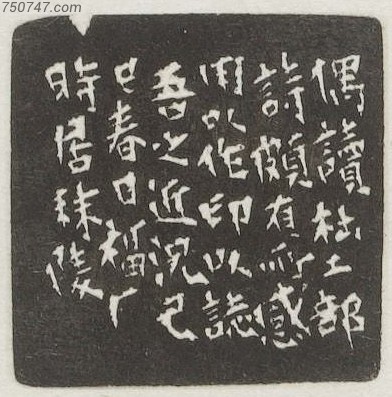 750747.com
偶讀杜工部
詩頗有所感
用以作印以誌
吾之近況己
巳春日福厂
時居秣陵